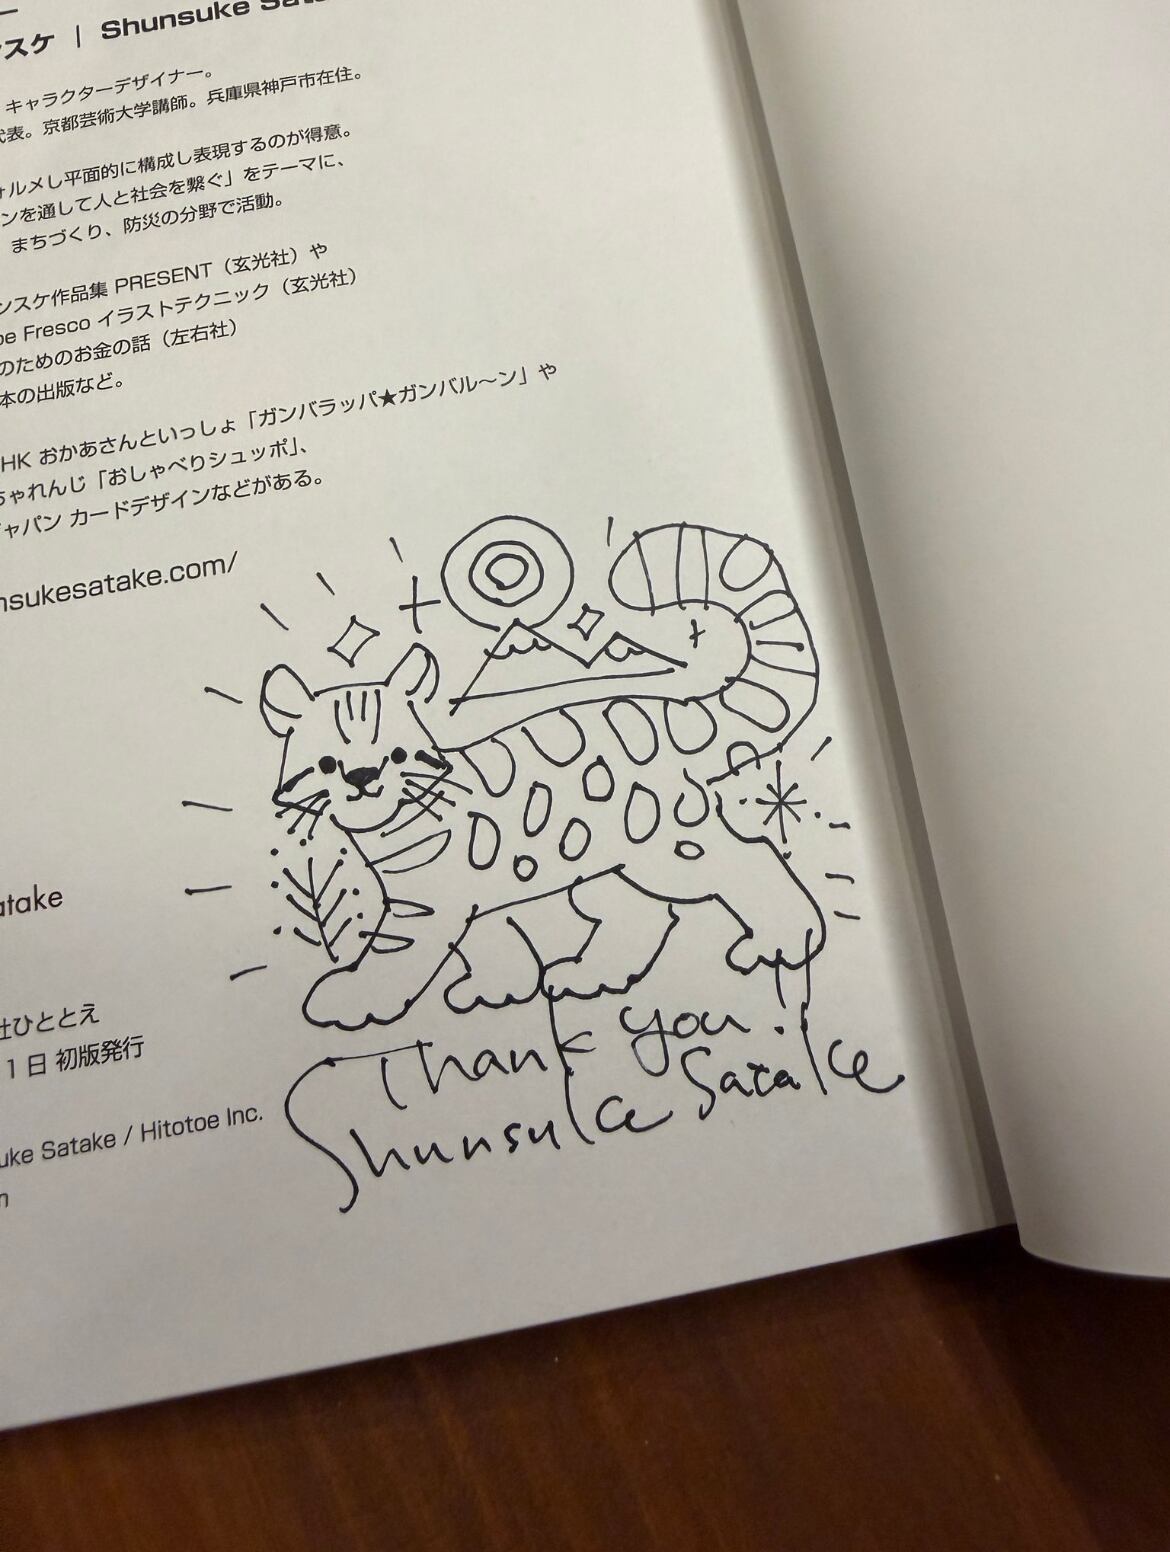 スケ | Shunsuke
キャラクターデザイナー。
代表。京都芸術大学講師。兵庫県神戸市在住。
ォルメし平面的に構成し表現するのが得意。
ンを通して人と社会を繋ぐ」をテーマに、
まちづくり、防災の分野で活動。
ンスケ作品集 PRESENT（玄光社）や
be Fresco イラストテクニック（玄光社）
のためのお金の話（左右社）
本の出版など。
HK おかあさんといっしょ「ガンバラッパ★ガンバル〜ン」や
ちゃれんじ「おしゃべりシュッポ」、
ャパン カードデザインなどがある。
nsukesatake.com/
atake
社ひととえ
1日 初版発行
uke Satake / Hitotoe Inc.
Thank you!
Shunsuke Satake